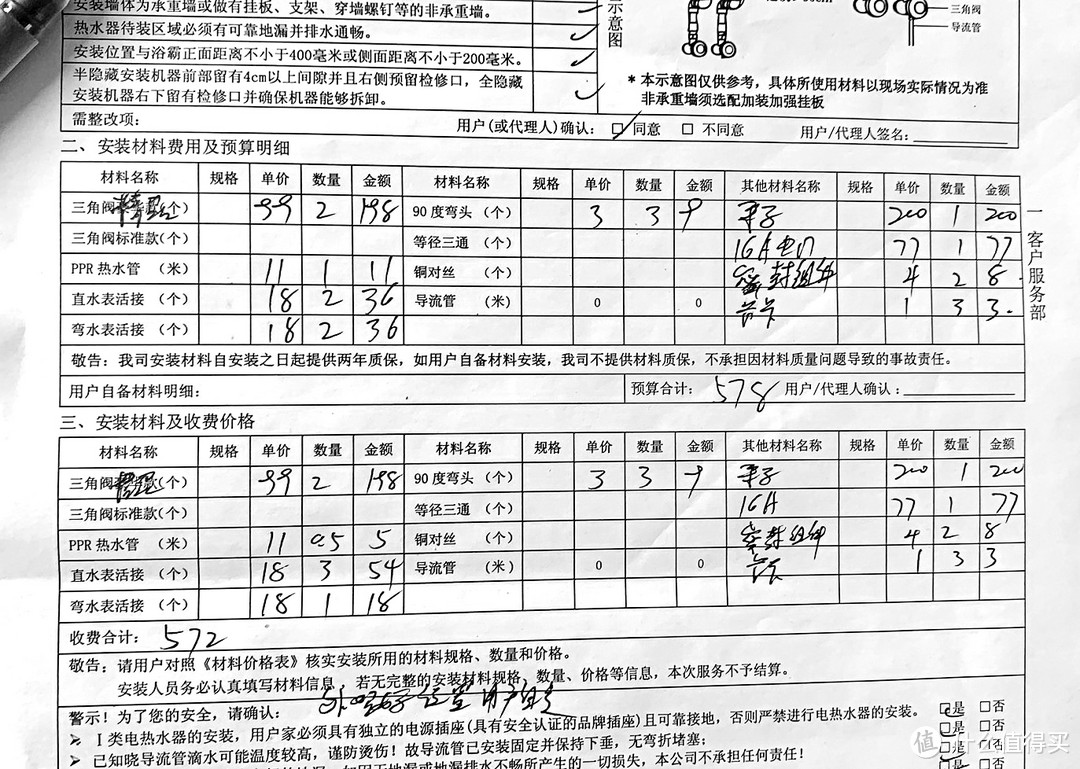 安装墙体为承重墙或做有挂板、支架、穿墙螺钉等的非承重墙。
热水器待装区域必须有可靠地漏并排水通畅。
安装位置与浴霸正面距离不小于400毫米或侧面距离不小于200毫米。
半隐藏安装机器前部留有4cm以上间隙并且右侧预留检修口，全隐藏
安装机器右下留有检修口并确保机器能够拆卸。
示意图
三角阀
导流管
*本示意图仅供参考，具体所使用材料以现场实际情况为准
非承重墙须选配加装加强挂板
需整改项： 用户(或代理人)确认：☐ 同意 ☐ 不同意 用户/代理人签名：
二、安装材料费用及预算明细
材料名称 规格 单价 数量 金额 材料名称 规格 单价 数量 金额 其他材料名称 规格 单价 数量 金额
三角阀 (个) 99 2 198 90度弯头（个） 3 3 9 200 1 200
三角阀标准款(个) 等径三通（个） 16A 77 1 77
PPR热水管（米） 11 1 11 铜对丝（个） 密封组件 4 2 8
直水表活接（个） 18 2 36 导流管（米） 0 0 1 3 3
弯水表活接（个） 18 2 36
敬告：我司安装材料自安装之日起提供两年质保，如用户自备材料安装，我司不提供材料质保，不承担因材料质量问题导致的事故责任。
用户自备材料明细： 预算合计：578 用户/代理人确认：
一客户服务部
三、安装材料及收费价格
材料名称 规格 单价 数量 金额 材料名称 规格 单价 数量 金额 其他材料名称 规格 单价 数量 金额
三角阀 (个) 99 2 198 90度弯头（个） 3 3 9 200 1 200
三角阀标准款(个) 等径三通（个） 16A 77 1 77
PPR热水管（米） 11 0.5 5 铜对丝（个） 密封组件 4 2 8
直水表活接（个） 18 3 54 导流管（米） 0 0 1 3 3
弯水表活接（个） 18 1 18
收费合计：572
敬告：请用户对照《材料价格表》核实安装所用的材料规格、数量和价格。
安装人员务必认真填写材料信息，若无完整的安装材料规格、数量、价格等信息，本次服务不予结算。
警示！为了您的安全，请确认：
➢ Ⅰ类电热水器的安装，用户家必须具有独立的电源插座(具有安全认证的品牌插座)且可靠接地，否则严禁进行电热水器的安装。 ☐是 ☐否
➢ 已知晓导流管滴水可能温度较高，谨防烫伤！故导流管已安装固定并保持下垂，无弯折堵塞； ☐是 ☐否
因地漏或地漏排水不畅所产生的一切损失，本公司不承担任何责任！
值 什么值得买